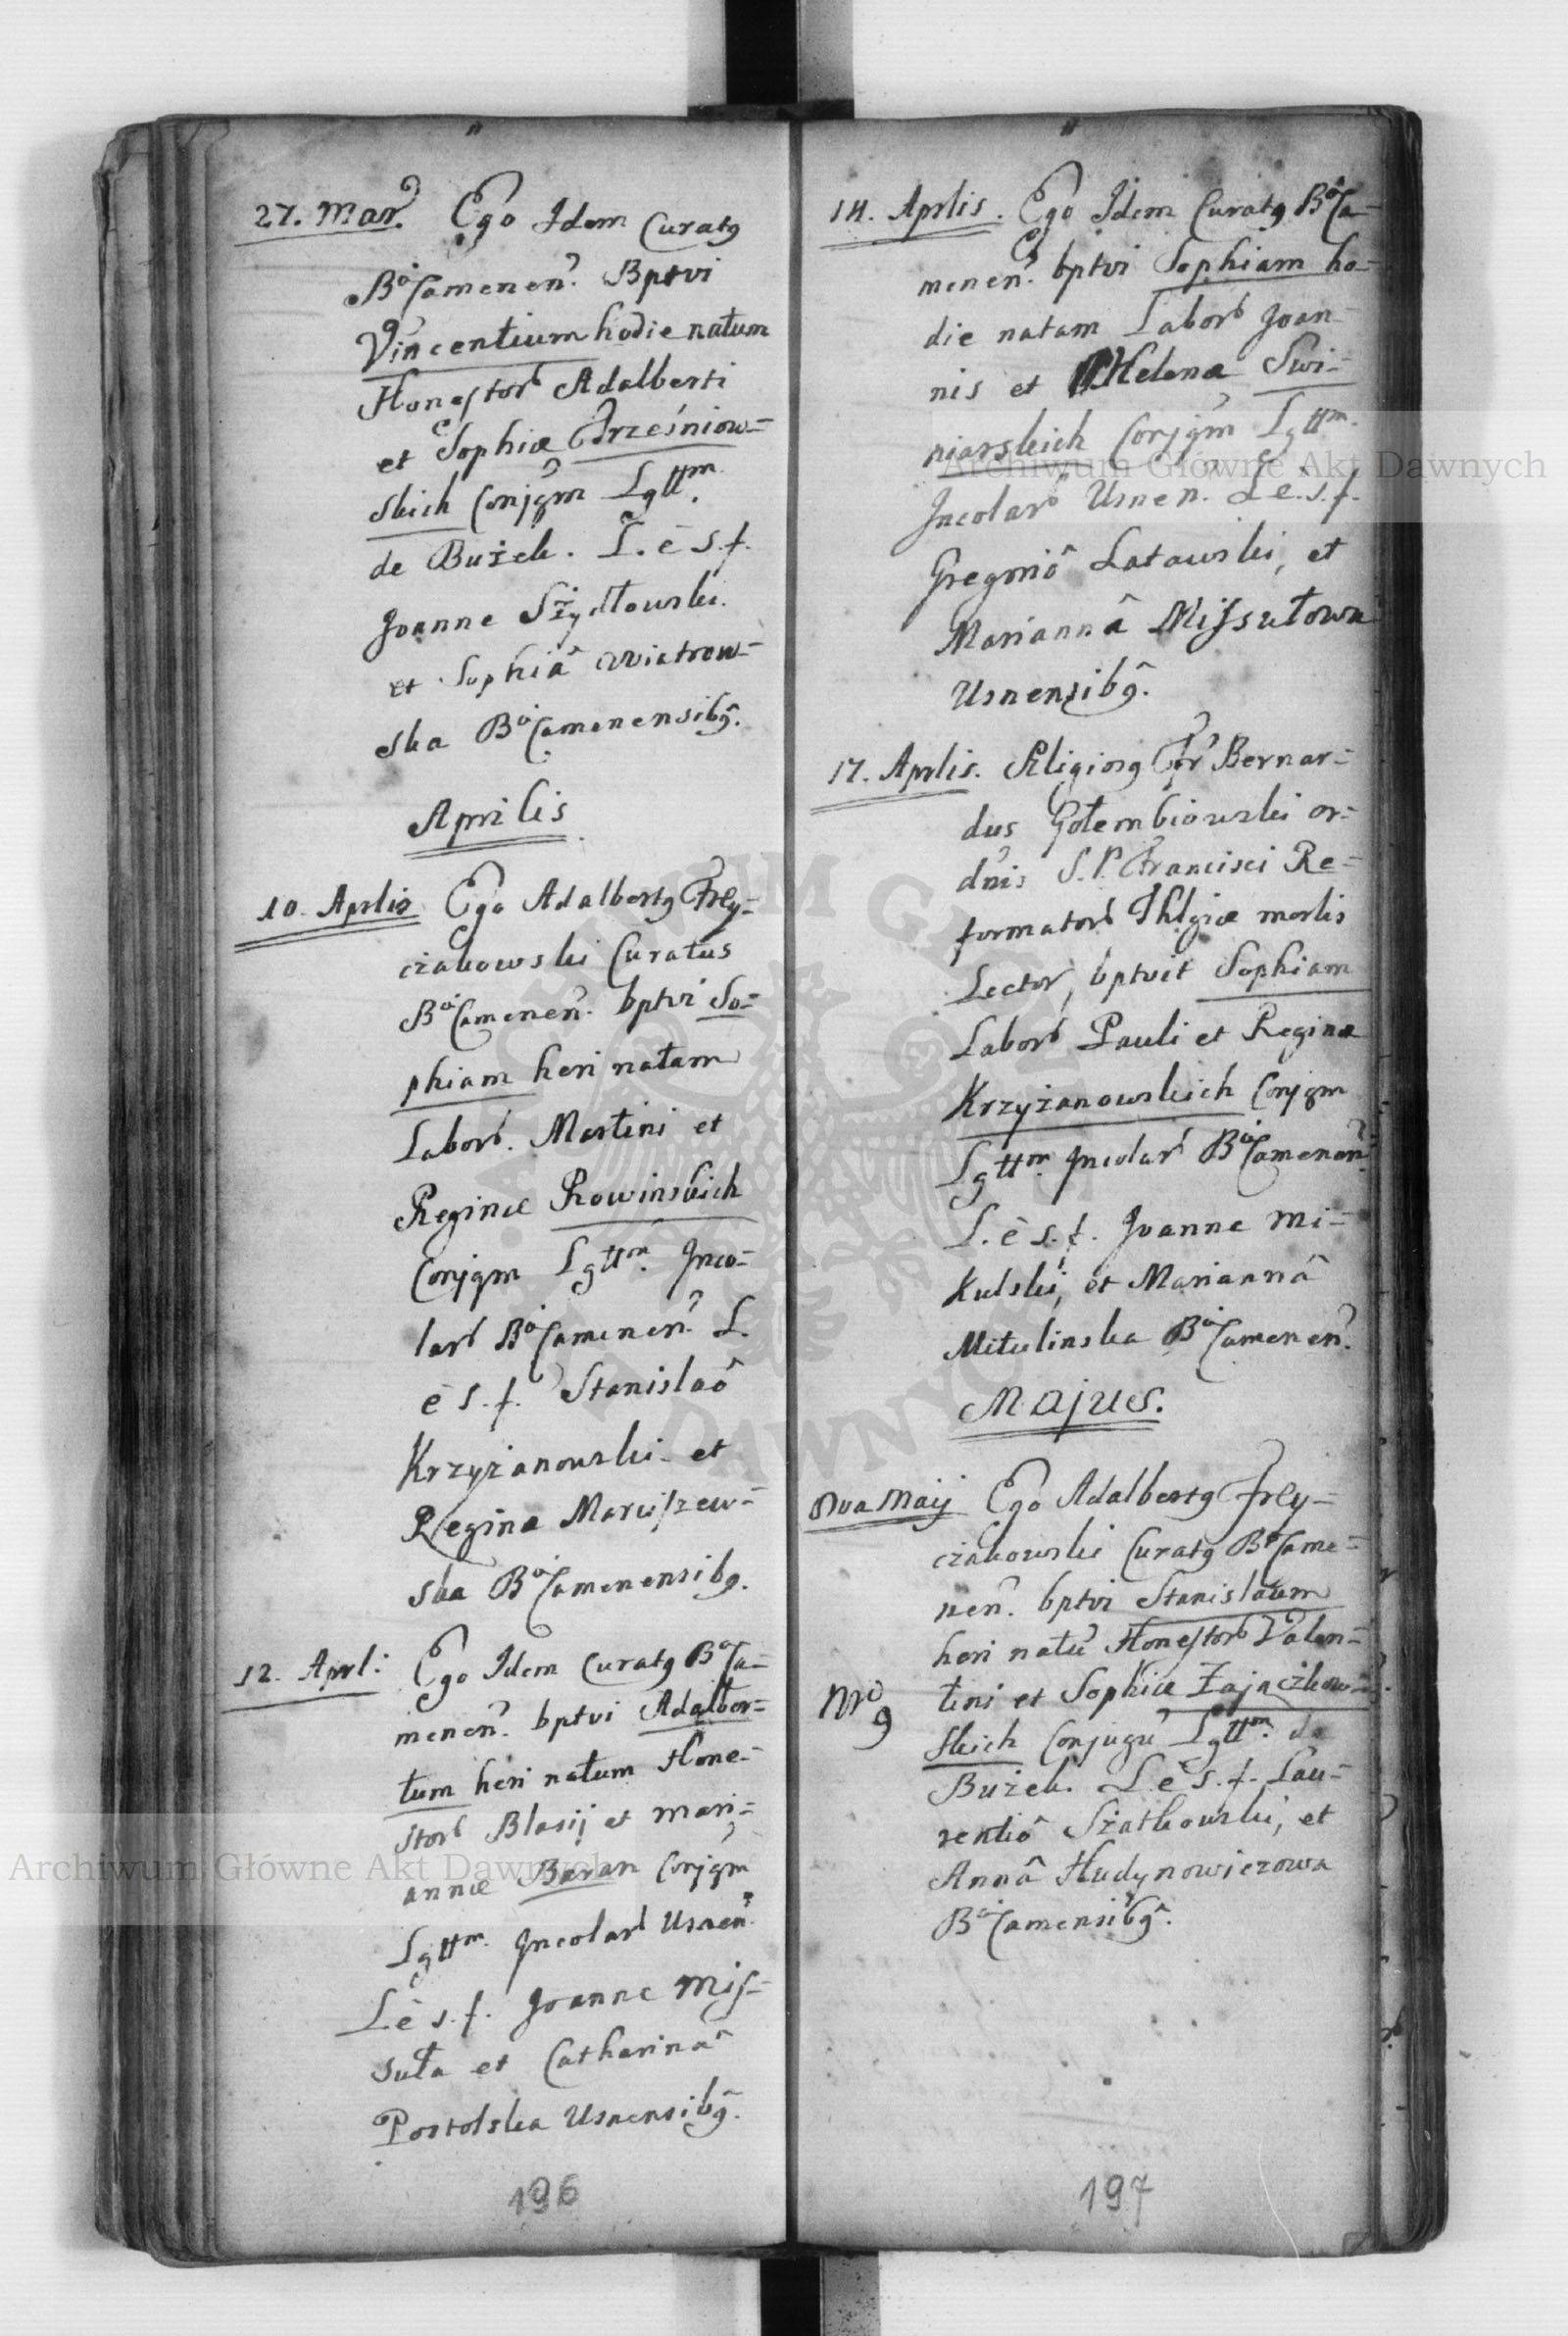 27. Mar. Ego Idem Curatq
BoCamenen. Bptvi
Vincentium hodie natum
Honestorb Adalberti
et Sophiæ Trześniow=
skich Conjgm Lgttm.
de Bużek. L. è s. f.
Joanne Szydłowski.
et Sophiâ Wiatrow=
ska BoCamenensibq.
Aprilis
10. Aprlis Ego Adalbertq Frey=
czakowski Curatus
BoCamenen. bptvi So=
phiam heri natam
Laborb. Martini et
Reginæ Rowinskich
Conjgm Lgttm. Inco=
larb BoCamenen. L.
è s. f. Stanislaô
Krzyżanowski et
Regina Maruszew=
ska BoCamenensibq.
12. Aprl: Ego Idem Curatq BoCa=
menen. bptvi Adalber=
tum heri natum Hone=
storb Blasij et Mari=
annæ Baran Conjgm
Lgttm. Incolarb Usnen.
L è s. f. Joanne Mis=
suła et Catharinâ
Postolska Usnensibq.
196
14. Aprlis. Ego Idem Curatq BoCa=
menen. bptvi Sophiam ho=
die natam Laborb Joan=
nis et Helena Swi=
niarskich Conjgm Lgttm.
Incolarb Usnen. L è. s. f.
Gregoriô Latawski, et
Mariannâ Missułowa
Usnensibq.
17. Aprlis. Rligiosq Fr Bernar=
dus Gołembiowski or=
dnis S. P. Francisci Re=
formatorb Thlgiæ morlis
Lector, bptvit Sophiam
Laborb Pauli et Reginæ
Krzyżanowskich Conjgm
Lgttm. Incolarb BoCamenen.
L. è s. f. Joanne Mi=
kulski, et Mariannâ
Mitulinska BoCamenen.
Majus.
8va Maij Ego Adalbertq Frey=
czakowski Curatq BoCame=
nen. bptvi Stanislaum
heri natu Honestorb Valen=
Nro 9 tini et Sophiæ Zajączkow=
skich Conjugu Lgttm. de
Bużek. L è s. f. Lau=
rentiô Szatkowski, et
Annâ Hudynowiczowa
BoCamensibq.
197
Archiwum Główne Akt Dawnych
Archiwum Główne Akt Dawnych